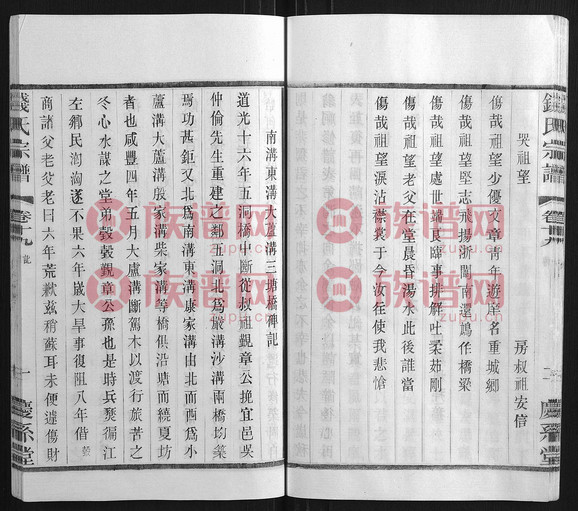 錢氏宗譜
卷
慶系堂
哭祖望
房叔祖安信
傷哉祖望少優文章青年遊庠名重城鄉
傷哉祖望堅志飛揚浙闈南還鴆作橋梁
傷哉祖望處世端良臨事排解吐柔茹剛
傷哉祖望老父在堂晨昏湯水此後誰當
傷哉祖望淚沾襟裳于今汝在使我悲愴
南溝東溝大蘆溝三塘橋碑記
道光十六年五洞橋中斷從叔祖觀章公挽宜邑吳
仲倫先生重建之鄰五洞北爲嚴溝沙溝兩橋均築
焉功甚鉅又北爲南溝東溝康家溝由北而西爲小
蘆溝大蘆溝殷家溝柴家溝等橋俱沿塘而繞夏坊
者也咸豐四年五月大蘆溝斷駕木以渡行旅苦之
冬心水謀之堂弟毅觀章公孫也是時兵燹徧江
左鄉民洶洶遂不果六年嵗大旱事復阻八年偕
商諸父老父老曰六年荒歉茲稍蘇耳未便遽傷財
錢氏宗譜
卷十九
記
一
慶系堂
族谱网
zupu.cn
族谱网
zupu.cn
族谱网
zupu.cn
族谱网
zupu.cn